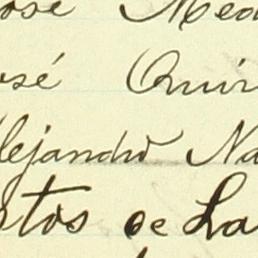 José Med
José Quir
Alejandro Na
tos de La